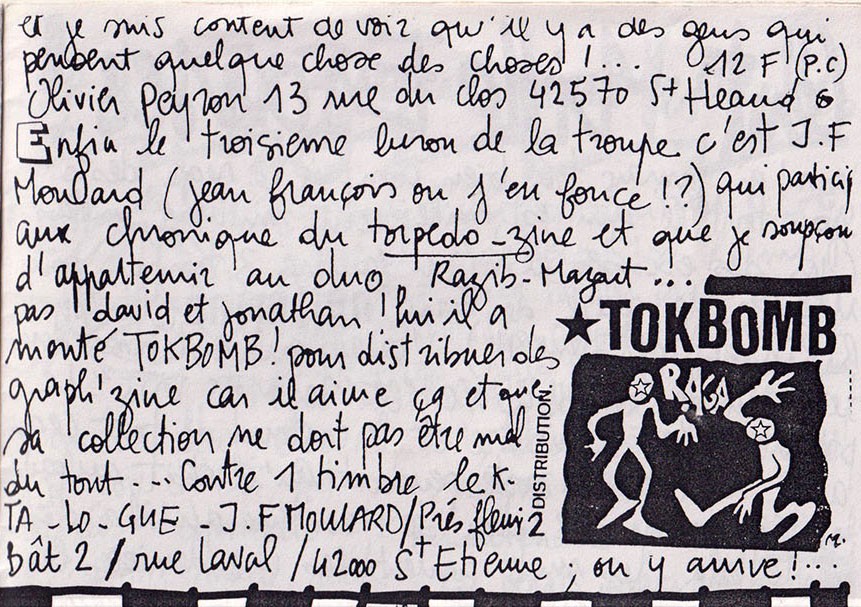 et je suis content de voir qu'il y a des gens qui
pensent quelque chose des choses !... 12 F (P.C)
Olivier Peyron 13 rue du clos 42570 St Heand
Enfin le troisieme luron de la troupe c'est J.F
Moulard (jean françois ou j'en fonce !?) qui particip
aux chronique du torpedo-zine et que je soupçon
d'appartenir au duo Razib-Mazout ...
pas david et jonathan ! lui il a
monté TOKBOMB ! pour distribuer des
graph'zine car il aime ça et que
sa collection ne doit pas être mal
du tout ... Contre 1 timbre le K-
TA-LO-GUE - J.F MOULARD/Prés fleuri 2
bât 2 / rue Laval / 42000 St Etienne ; on y arrive !...
★TOKBOMB
RAGA
DISTRIBUTION.